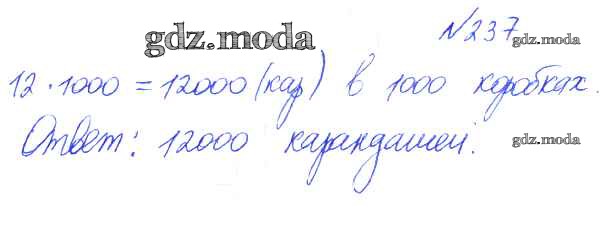 №237
gdz.moda
gdz.moda
12 · 1000 = 12000 (кар) в 1000 коробках.
gdz.moda
Ответ: 12000 карандашей.
gdz.moda
gdz.moda